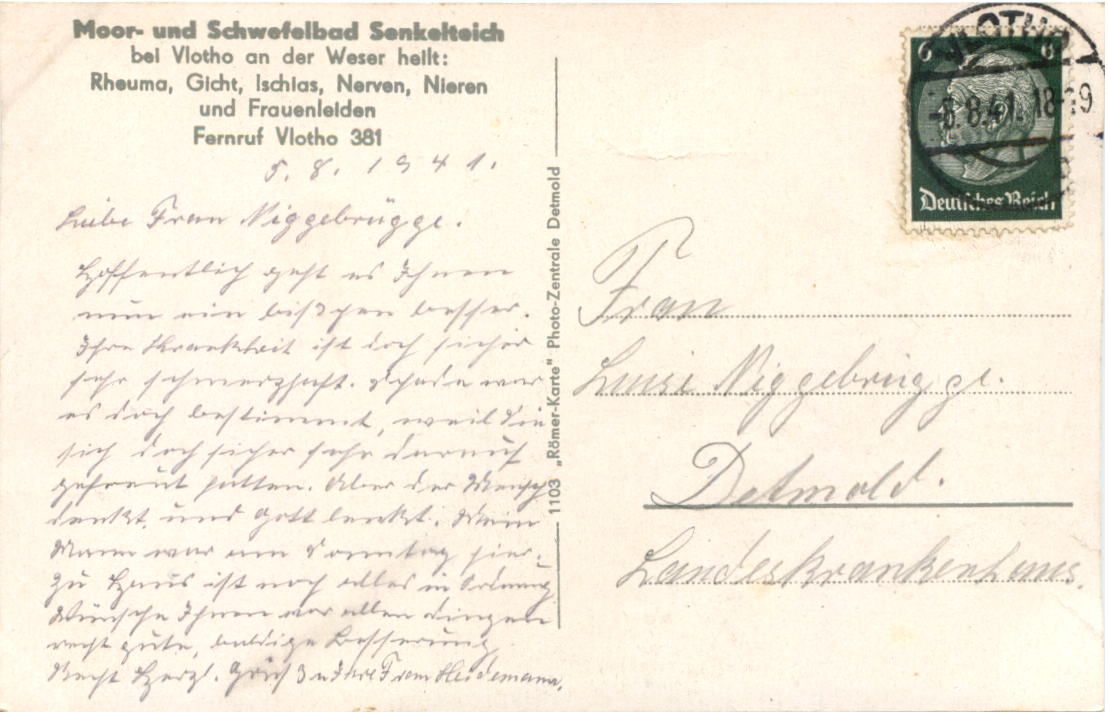 Moor- und Schwefelbad Senkelteich
bei Vlotho an der Weser heilt:
Rheuma, Gicht, Ischias, Nerven, Nieren
und Frauenleiden
Fernruf Vlotho 381
5. 8. 1941.
Liebe Frau Niggebrügge.
Hoffentlich geht es Ihnen
nun ein bißchen besser.
Ihre Krankheit ist doch sicher
sehr schmerzhaft. Schade war
es doch bestimmt, weil Sie
sich doch sicher sehr darauf
gefreut hatten. Aber der Mensch
denkt, und Gott lenkt. Mein
Mann war am Sonntag hier.
Zu Haus ist noch alles in Ordnung
Wünsche Ihnen vor allen Dingen
recht gute, baldige Besserung
Recht Herzl. Grüße Ihre Frau Heidemann.
1103 „Römer-Karte" Photo-Zentrale Detmold
VLOTHO
-5.8.41.18-19
6 6
Deutsches Reich
Frau
Luise Niggebrügge.
Detmold.
Landeskrankenhaus.